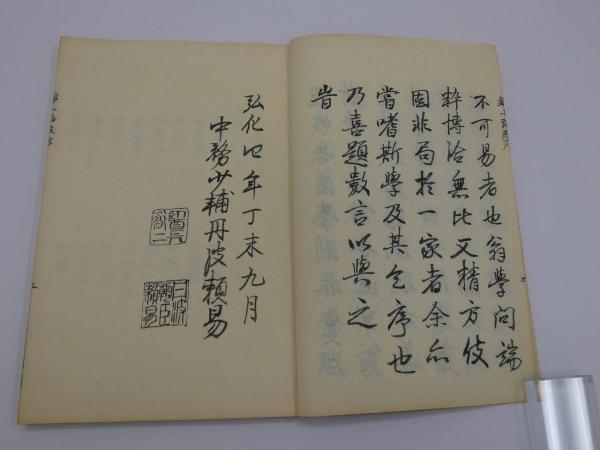 不可易者也翁學問端
粹博洽無比又精方伎
固非局於一家者余亦
嘗嗜斯學及其乞序也
乃喜題數言以與之
旹
弘化四年丁未九月
中務少輔丹波賴易
丹波
朝臣
賴易